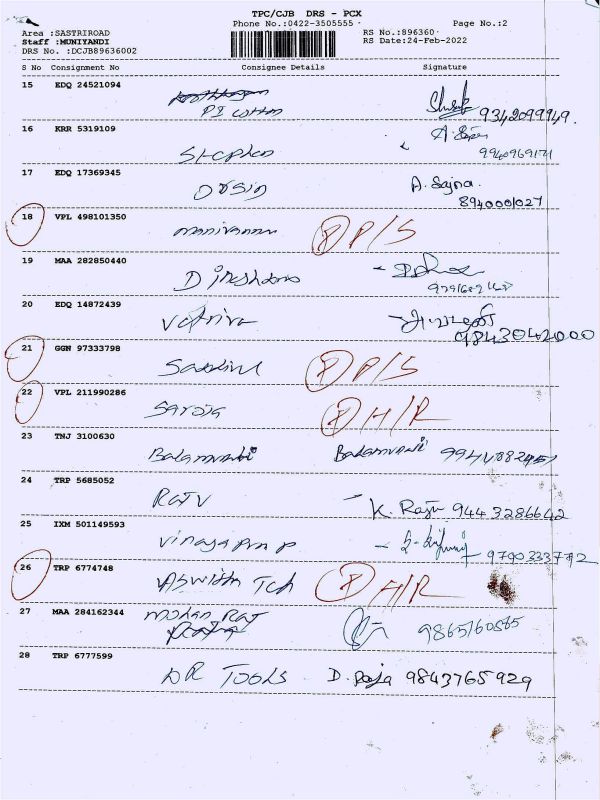 TPC/CJB DRS - PCX
Phone No.:0422-3505555
Page No.:2
Area :SASTRIROAD
Staff :MUNIYANDI
DRS No. :DCJB89636002
RS No.:896360
RS Date:24-Feb-2022
S No Consignment No Consignee Details Signature
15 EDQ 24521094
9342099949.
16 KRR 5319109
Stephen
9940969171
17 EDQ 17369345
A. Sajna.
8940001027
18 VPL 498101350
manivannan P/S
19 MAA 282850440
20 EDQ 14872439
9843042000
21 GGN 97333798
P/S
22 VPL 211990286
Saroja H/R
23 TNJ 3100630
Balamurali Balamurali
24 TRP 5685052
Raju K. Raju 9443286642
25 IXM 501149593
9790333772
26 TRP 6774748
H/R
27 MAA 284162344
Mohan Raj 9865160585
28 TRP 6777599
DR TOOLS D. Raja 9843765929